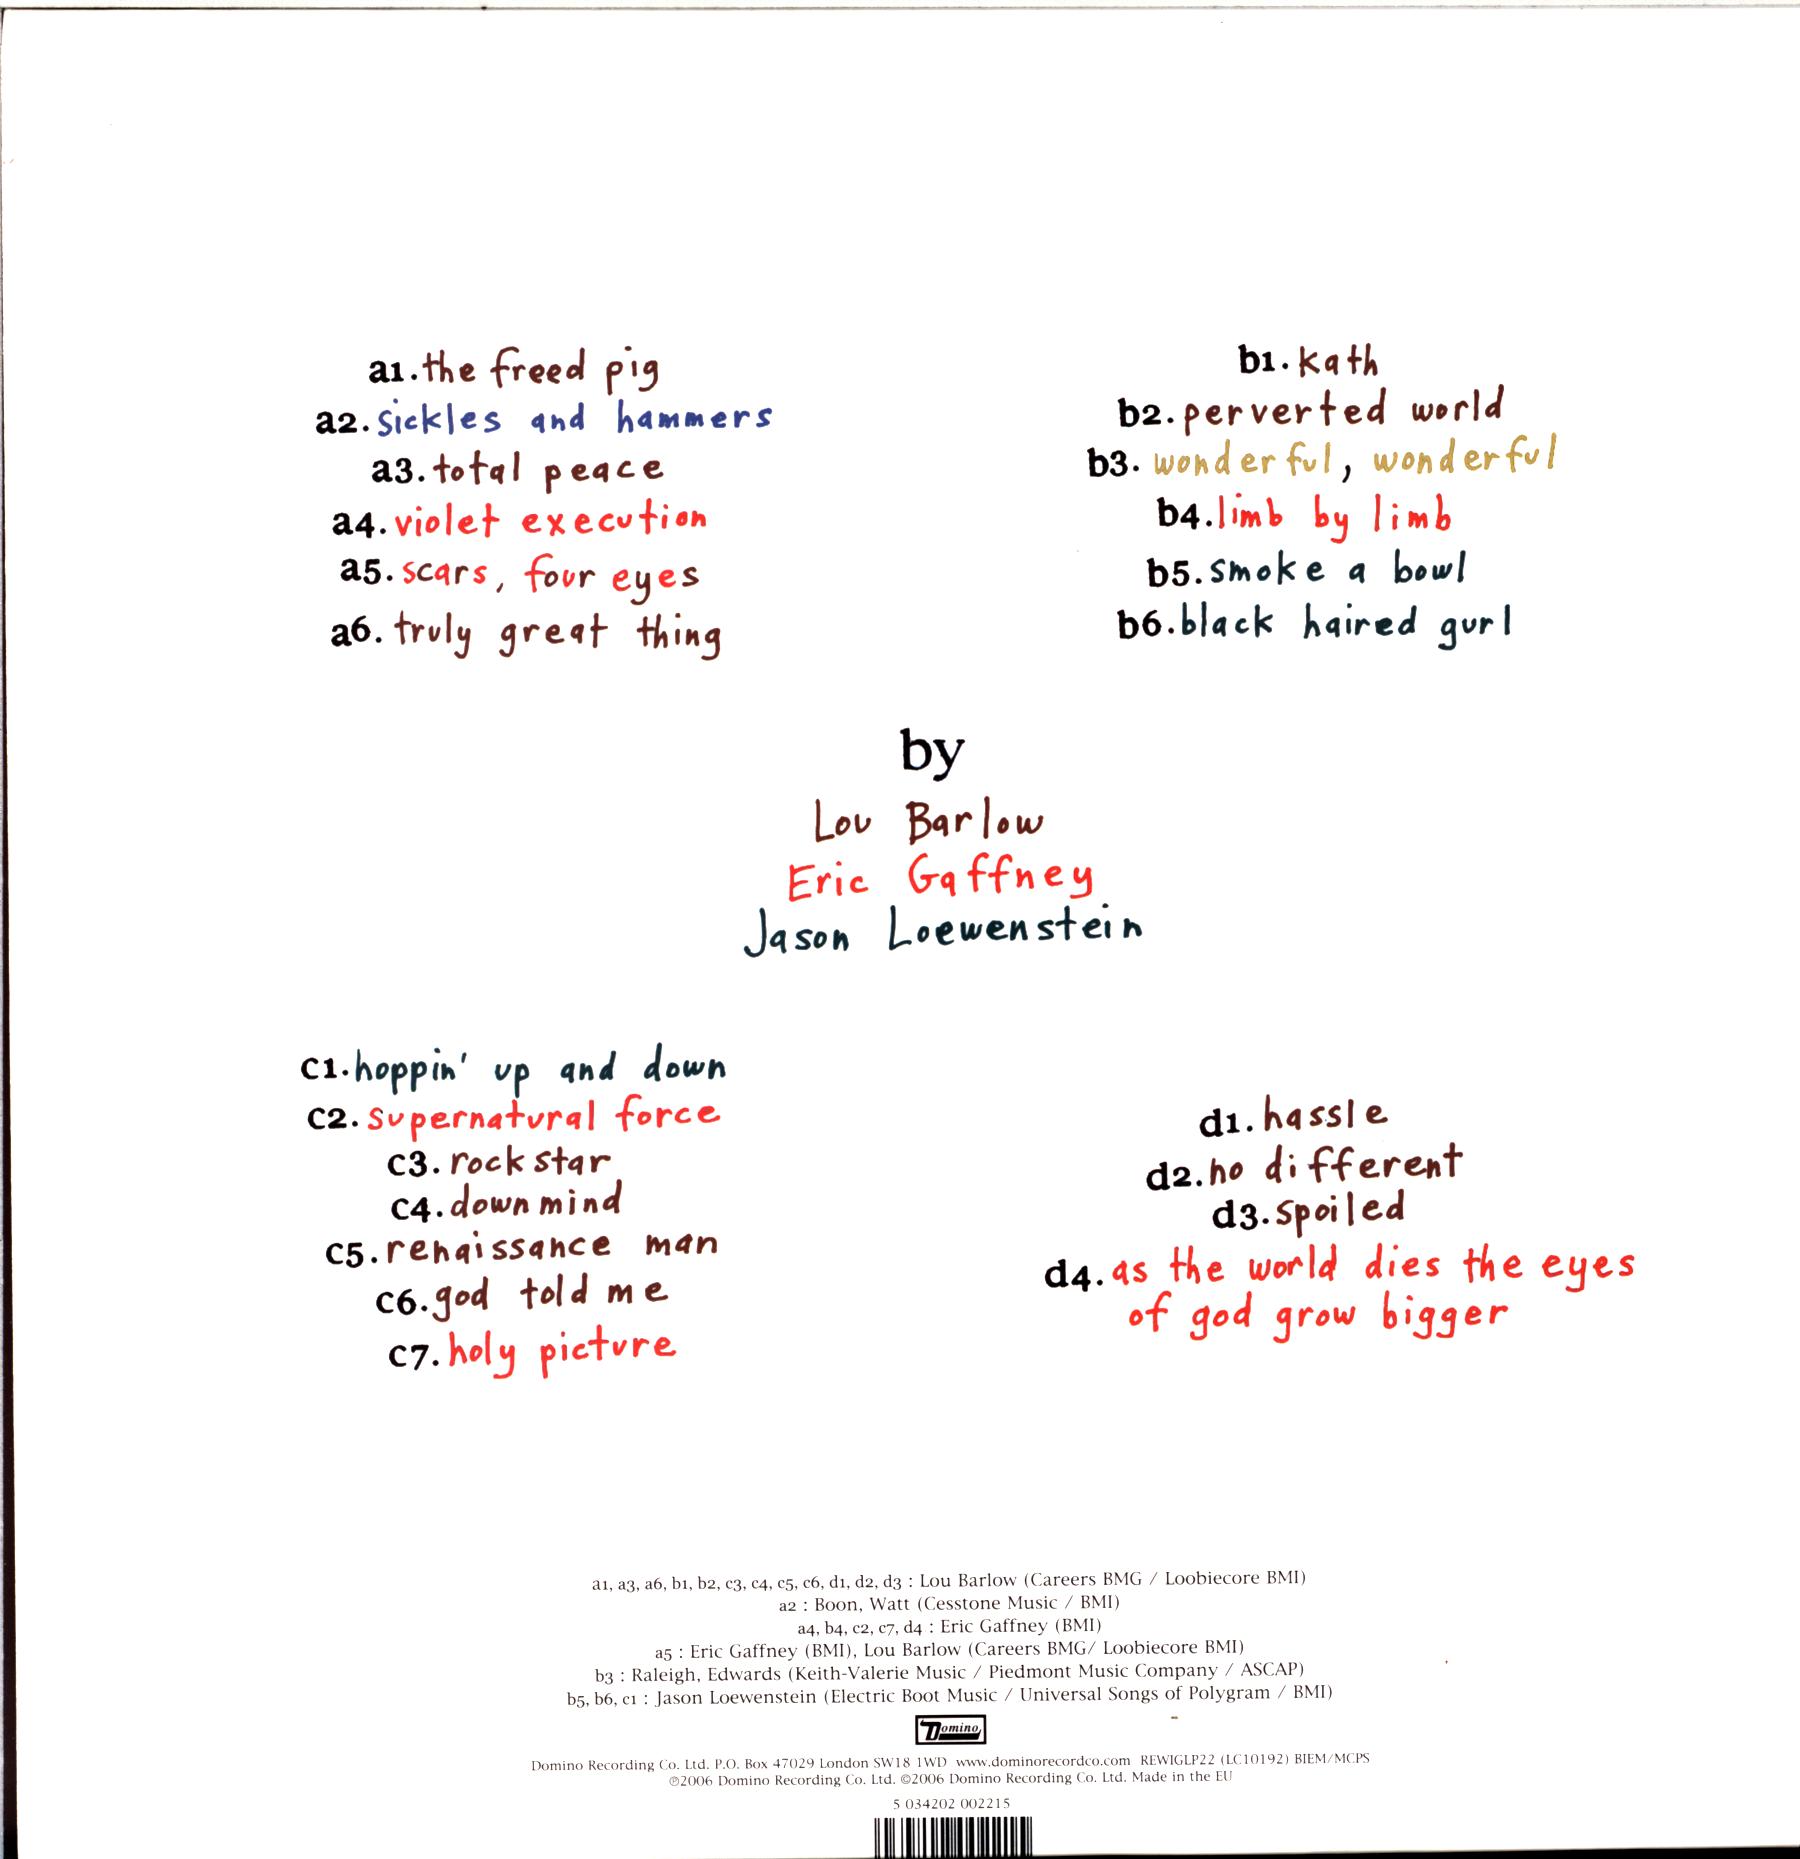 a1.the freed pig
a2.sickles and hammers
a3.total peace
a4.violet execution
a5.scars, four eyes
a6.truly great thing
b1.kath
b2.perverted world
b3.wonderful, wonderful
b4.limb by limb
b5.smoke a bowl
b6.black haired gurl
by
Lou Barlow
Eric Gaffney
Jason Loewenstein
c1.hoppin' up and down
c2.supernatural force
c3.rockstar
c4.downmind
c5.renaissance man
c6.god told me
c7.holy picture
d1.hassle
d2.no different
d3.spoiled
d4.as the world dies the eyes
of god grow bigger
a1, a3, a6, b1, b2, c3, c4, c5, c6, d1, d2, d3 : Lou Barlow (Careers BMG / Loobiecore BMI)
a2 : Boon, Watt (Cesstone Music / BMI)
a4, b4, c2, c7, d4 : Eric Gaffney (BMI)
a5 : Eric Gaffney (BMI), Lou Barlow (Careers BMG/ Loobiecore BMI)
b3 : Raleigh, Edwards (Keith-Valerie Music / Piedmont Music Company / ASCAP)
b5, b6, c1 : Jason Loewenstein (Electric Boot Music / Universal Songs of Polygram / BMI)
Domino
Domino Recording Co. Ltd. P.O. Box 47029 London SW18 1WD www.dominorecordco.com REWIGLP22 (LC10192) BIEM/MCPS
℗2006 Domino Recording Co. Ltd. ©2006 Domino Recording Co. Ltd. Made in the EU
5 034202 002215